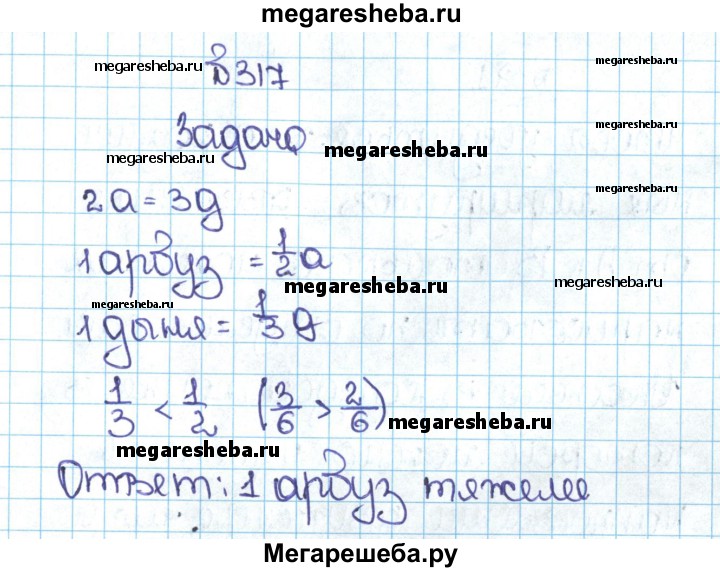 megaresheba.ru
megaresheba.ru № 317 megaresheba.ru
Задача megaresheba.ru
megaresheba.ru megaresheba.ru
2а = 3д megaresheba.ru
1 арбуз = 1/2 а megaresheba.ru
megaresheba.ru
megaresheba.ru
1 дыня = 1/3 д
1/3 < 1/2 (3/6 > 2/6) megaresheba.ru
megaresheba.ru
Ответ: 1 арбуз тяжелее
Мегарешеба.ру